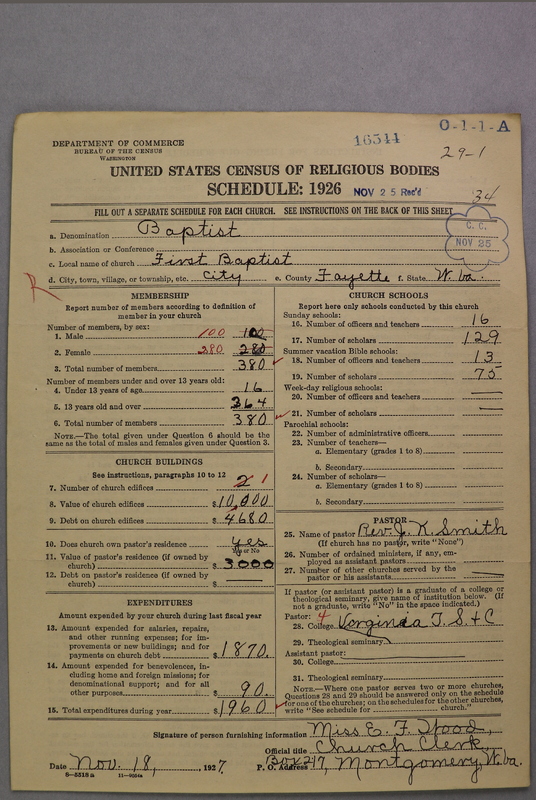 DEPARTMENT OF COMMERCE
BUREAU OF THE CENSUS
WASHINGTON
16544
O-1-1-A
29-1
UNITED STATES CENSUS OF RELIGIOUS BODIES
SCHEDULE: 1926
NOV 25 Rec'd
34
FILL OUT A SEPARATE SCHEDULE FOR EACH CHURCH. SEE INSTRUCTIONS ON THE BACK OF THIS SHEET
C. C.
NOV 25
a. Denomination Baptist
b. Association or Conference
c. Local name of church First Baptist
d. City, town, village, or township, etc. City e. County Fayette f. State W. Va.
R
MEMBERSHIP
Report number of members according to definition of
member in your church
Number of members, by sex:
1. Male 100 100
2. Female 280 280
3. Total number of members 380
Number of members under and over 13 years old:
4. Under 13 years of age 16
5. 13 years old and over 364
6. Total number of members 380
NOTE.—The total given under Question 6 should be the
same as the total of males and females given under Question 3.
CHURCH BUILDINGS
See instructions, paragraphs 10 to 12
7. Number of church edifices 2 1
8. Value of church edifices $10,000
9. Debt on church edifices $4680
10. Does church own pastor's residence yes
Yes or No
11. Value of pastor's residence (if owned by
church) $3000
12. Debt on pastor's residence (if owned by
church) $
EXPENDITURES
Amount expended by your church during last fiscal year
13. Amount expended for salaries, repairs,
and other running expenses; for im-
provements or new buildings; and for
payments on church debt $1870.
14. Amount expended for benevolences, in-
cluding home and foreign missions; for
denominational support; and for all
other purposes $90.
15. Total expenditures during year $1960
CHURCH SCHOOLS
Report here only schools conducted by this church
Sunday schools:
16. Number of officers and teachers 16
17. Number of scholars 129
Summer vacation Bible schools:
18. Number of officers and teachers 13
19. Number of scholars 75
Week-day religious schools:
20. Number of officers and teachers
21. Number of scholars
Parochial schools:
22. Number of administrative officers
23. Number of teachers—
a. Elementary (grades 1 to 8)
b. Secondary
24. Number of scholars—
a. Elementary (grades 1 to 8)
b. Secondary
PASTOR
25. Name of pastor Rev. J. K. Smith
(If church has no pastor, write "None")
26. Number of ordained ministers, if any, em-
ployed as assistant pastors
27. Number of other churches served by the
pastor or his assistants
If pastor (or assistant pastor) is a graduate of a college or
theological seminary, give name of institution below. (If
not a graduate, write "No" in the space indicated.)
Pastor: 4
28. College Verginda T. S. & C
29. Theological seminary
Assistant pastor:
30. College
31. Theological seminary
NOTE.—Where one pastor serves two or more churches,
Questions 28 and 29 should be answered only on the schedule
for one of the churches; on the schedules for the other churches,
write "See schedule for church."
Signature of person furnishing information Miss E. F. Wood,
Official title Church Clerk,
Date Nov. 18, 1927. P. O. Address Box 217, Montgomery, W. Va.
8-5518 a 11-9054a